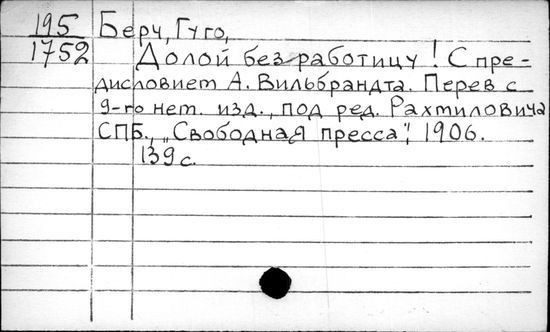 195 Берч, Гуго,
1752 Долой безработицу! С пре-
дисловием А. Вильбрандта. Перев с
9-го нем. изд., под ред. Рахтиловича
СПБ., „Свободная пресса", 1906.
139 с.